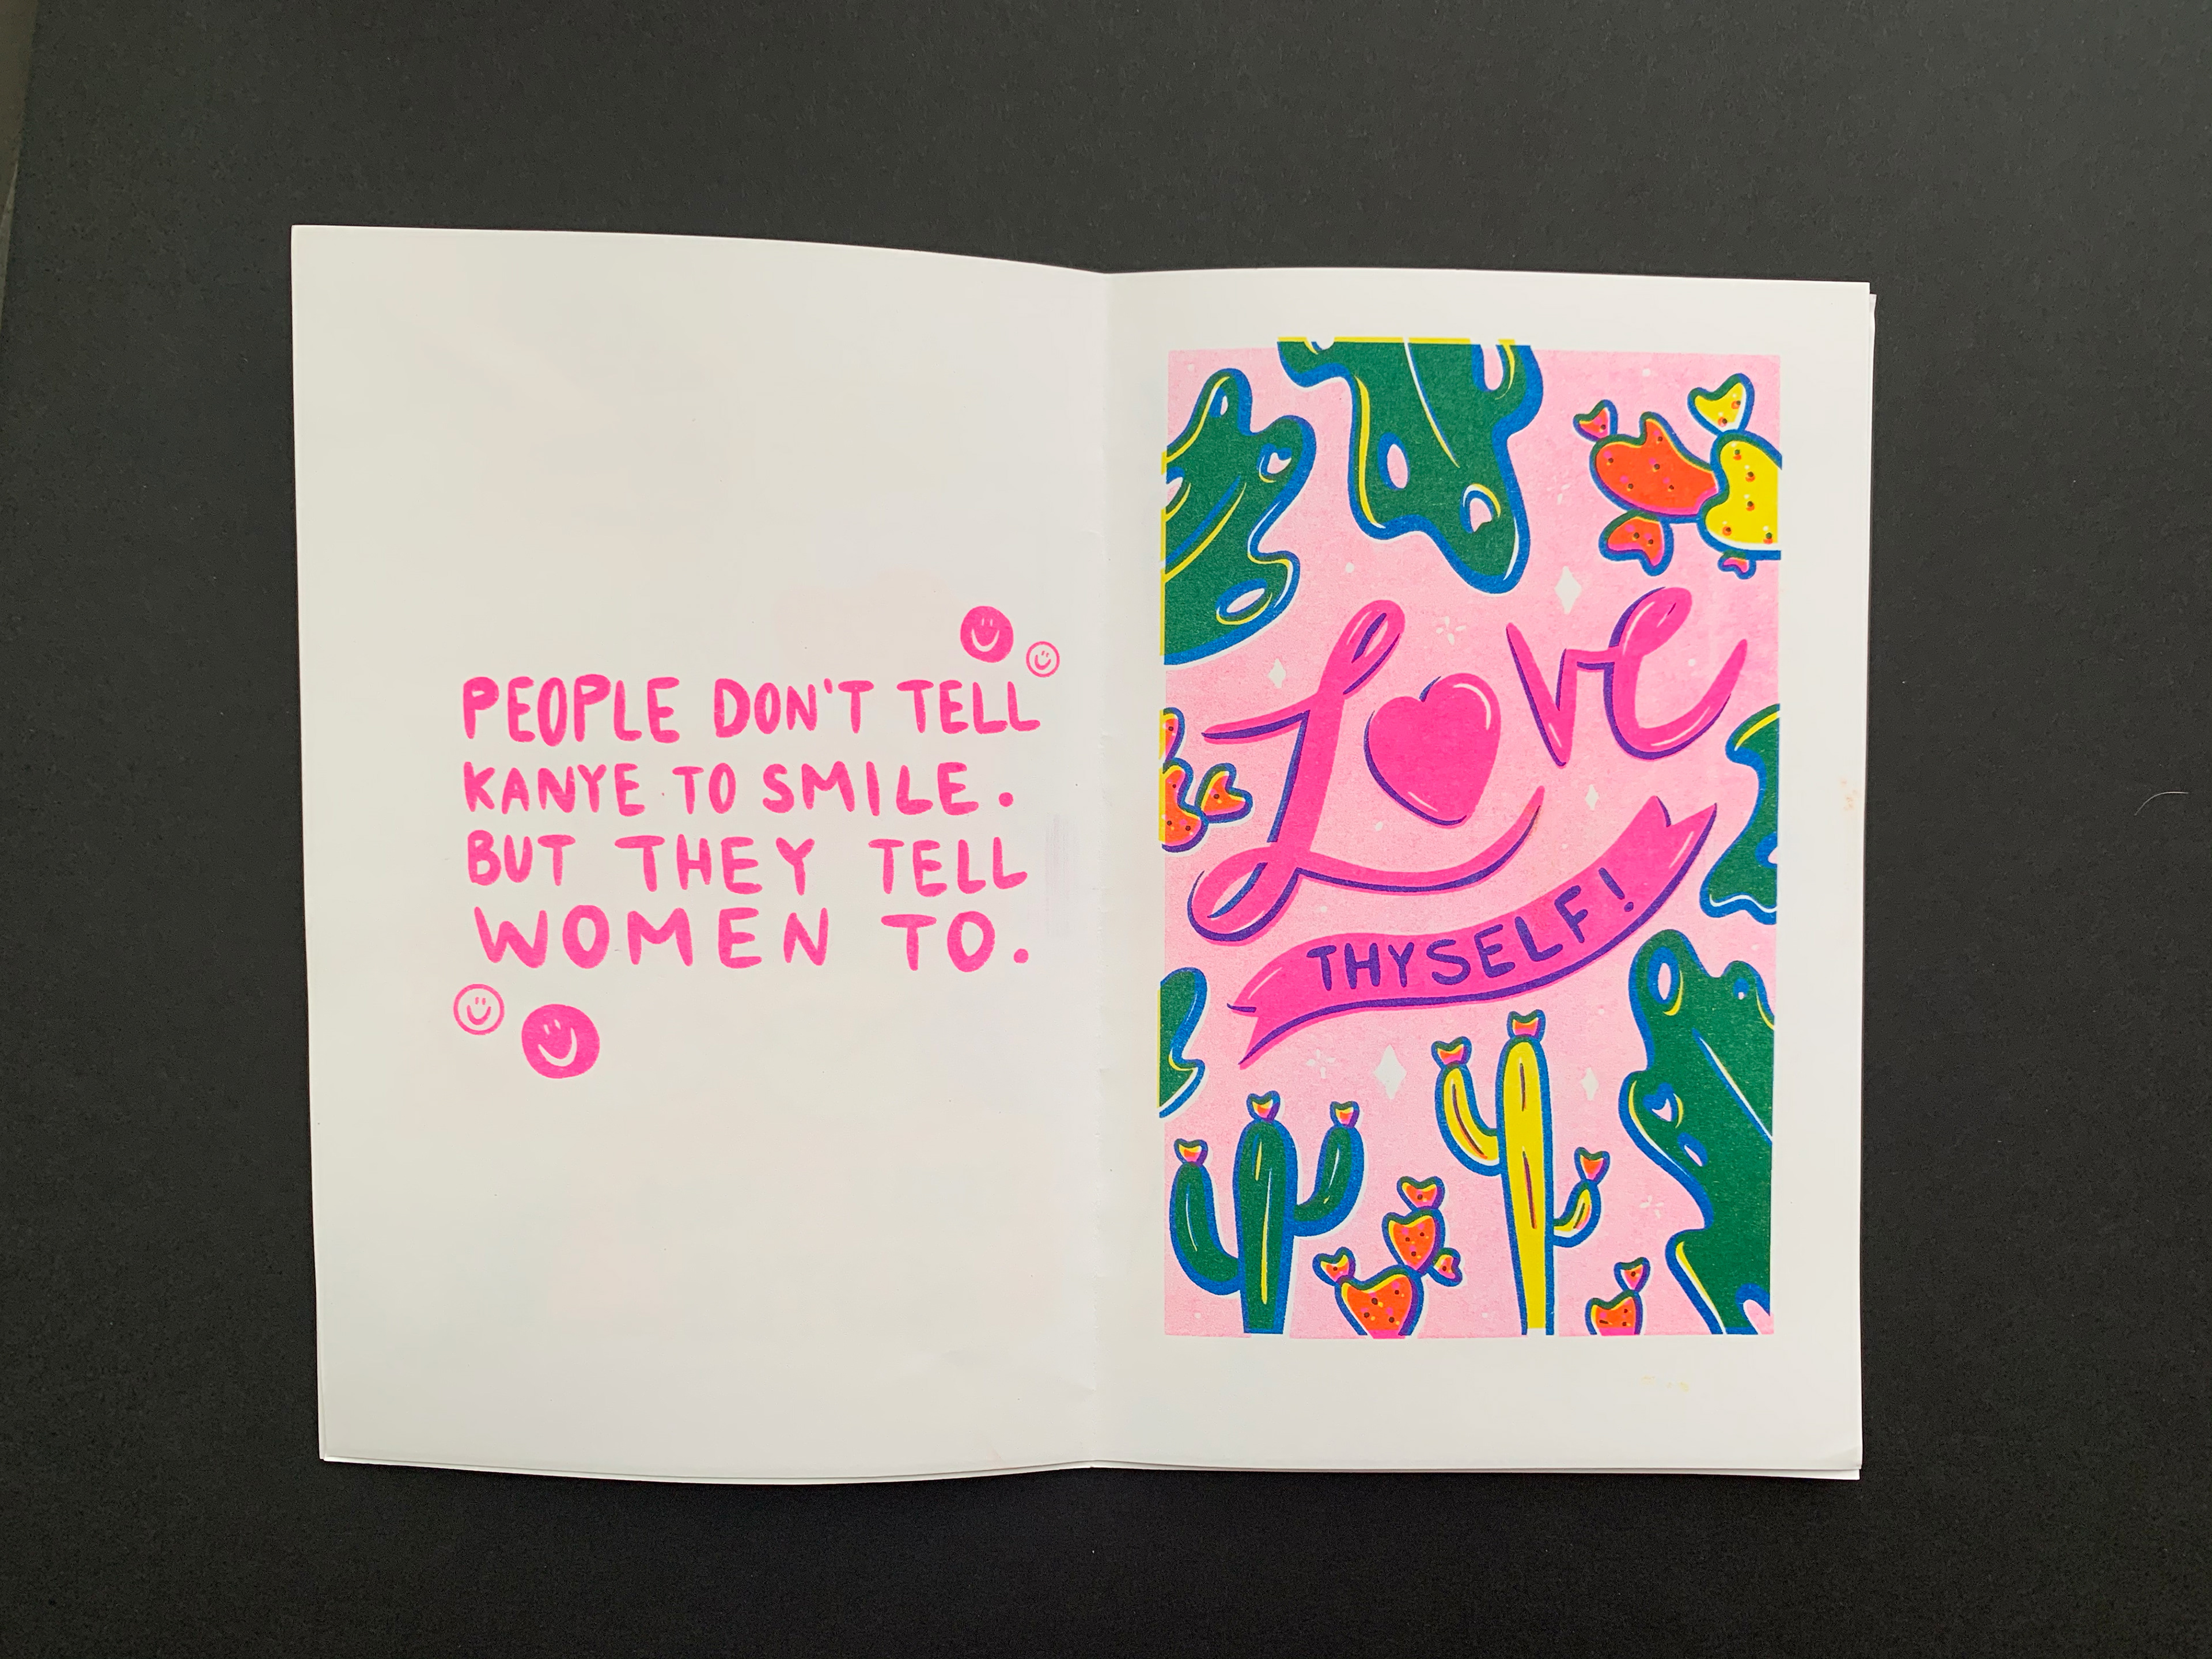 PEOPLE DON'T TELL
KANYE TO SMILE.
BUT THEY TELL
WOMEN TO.
Love
THYSELF!